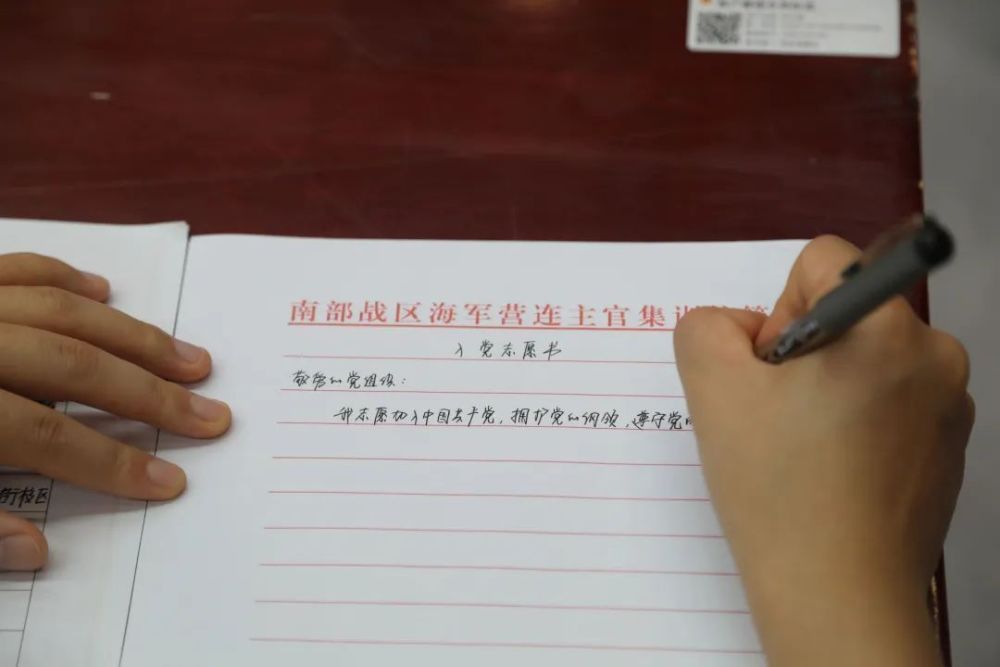 南部战区海军营连主官集训
入党志愿书
敬爱的党组织:
我志愿加入中国共产党,拥护党的纲领,遵守党
街校区